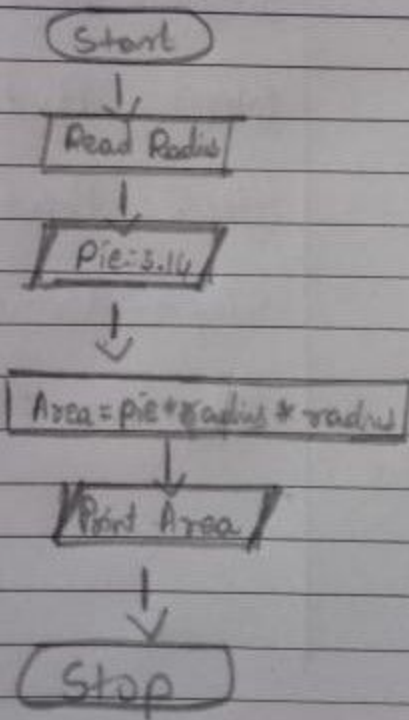 Start
Read Radius
Pie=3.14
Area=pie*radius * radius
Print Area
Stop